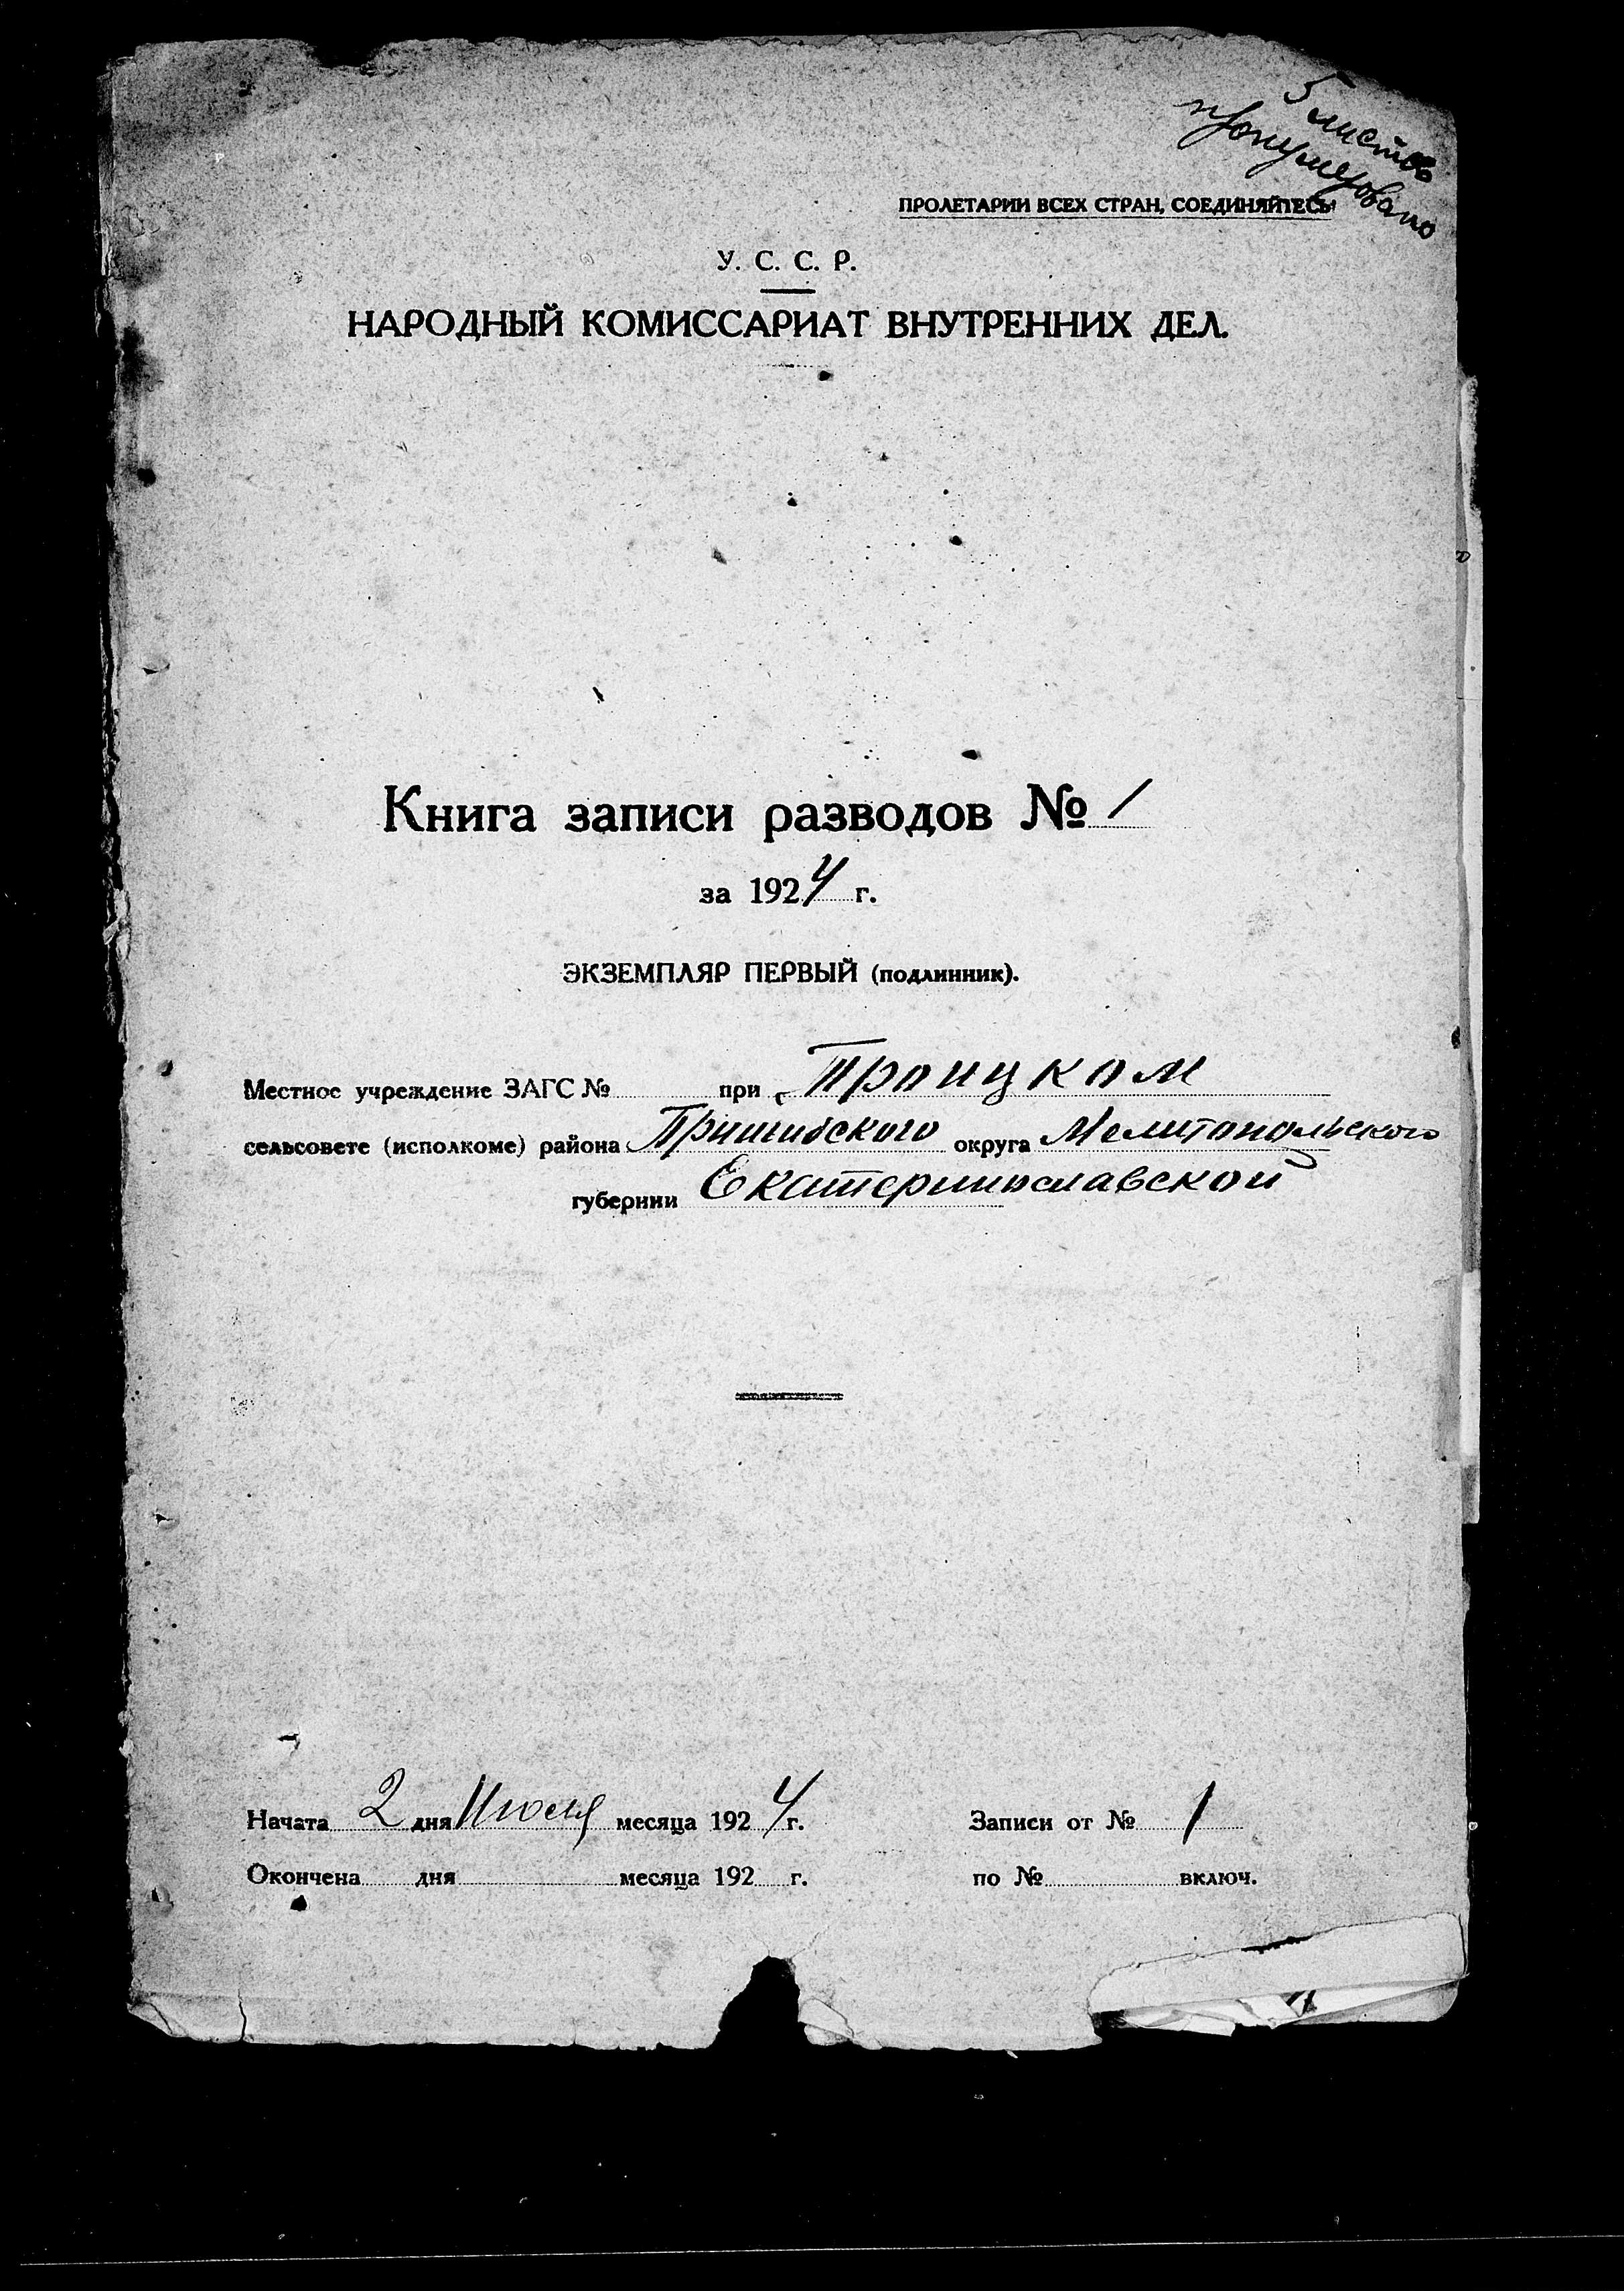 5 листов
пронумеровано
ПРОЛЕТАРИИ ВСЕХ СТРАН, СОЕДИНЯЙТЕСЬ
У. С. С. Р.
НАРОДНЫЙ КОМИССАРИАТ ВНУТРЕННИХ ДЕЛ.
Книга записи разводов № 1
за 1924 г.
ЭКЗЕМПЛЯР ПЕРВЫЙ (подлинник).
Местное учреждение ЗАГС № при Троицком
сельсовете (исполкоме) района Пришибского округа Мелитопольского
губернии Екатеринославской
Начата 2 дня Июля месяца 1924 г. Записи от № 1
Окончена дня месяца 192 г. по № включ.